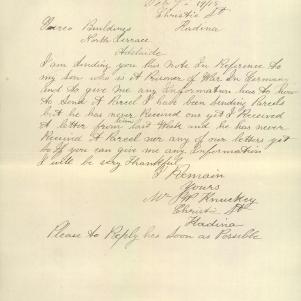 Christie St
Verco Buildings Kadina
North Terrace
Adelaide
I am sending you this Note In Reference to
my Son who is a Prisoner of War In Germany
and to give me any Information has to how
to send a Parcel I have been sending Parcels
but he has never Received one yet I Received
a letter from him last Week and he has never
Received a Parcel nor any of our letters yet
so If you can give me any Information
I will be very Thankful
I Remain
Yours
Mr Knuckey
Christie St
Kadina
Please to Reply has Soon as Possible